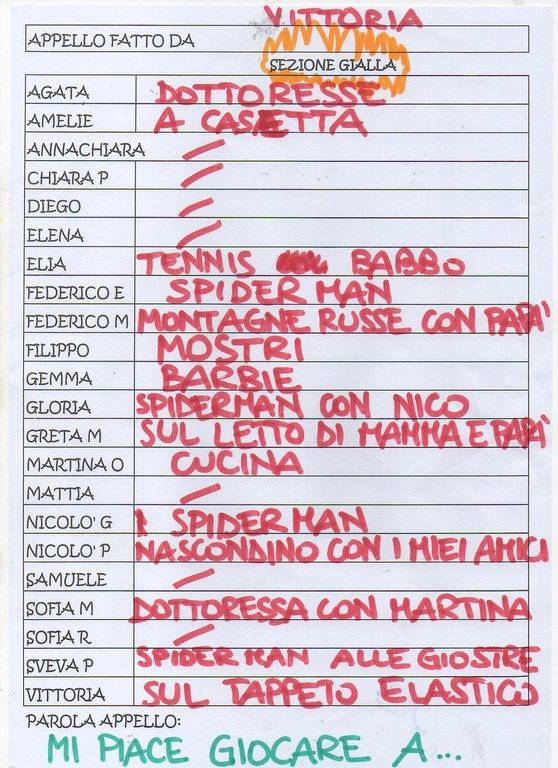 VITTORIA
APPELLO FATTO DA
SEZIONE GIALLA
AGATA DOTTORESSE
AMELIE A CASETTA
ANNACHIARA /
CHIARA P /
DIEGO /
ELENA /
ELIA TENNIS BABBO
FEDERICO E SPIDER MAN
FEDERICO M MONTAGNE RUSSE CON PAPA'
FILIPPO MOSTRI
GEMMA BARBIE
GLORIA SPIDERMAN CON NICO
GRETA M SUL LETTO DI MAMMA E PAPA'
MARTINA O CUCINA
MATTIA /
NICOLO' G SPIDERMAN
NICOLO' P NASCONDINO CON I MIEI AMICI
SAMUELE /
SOFIA M DOTTORESSA CON MARTINA
SOFIA R /
SVEVA P SPIDERMAN ALLE GIOSTRE
VITTORIA SUL TAPPETO ELASTICO
PAROLA APPELLO:
MI PIACE GIOCARE A...